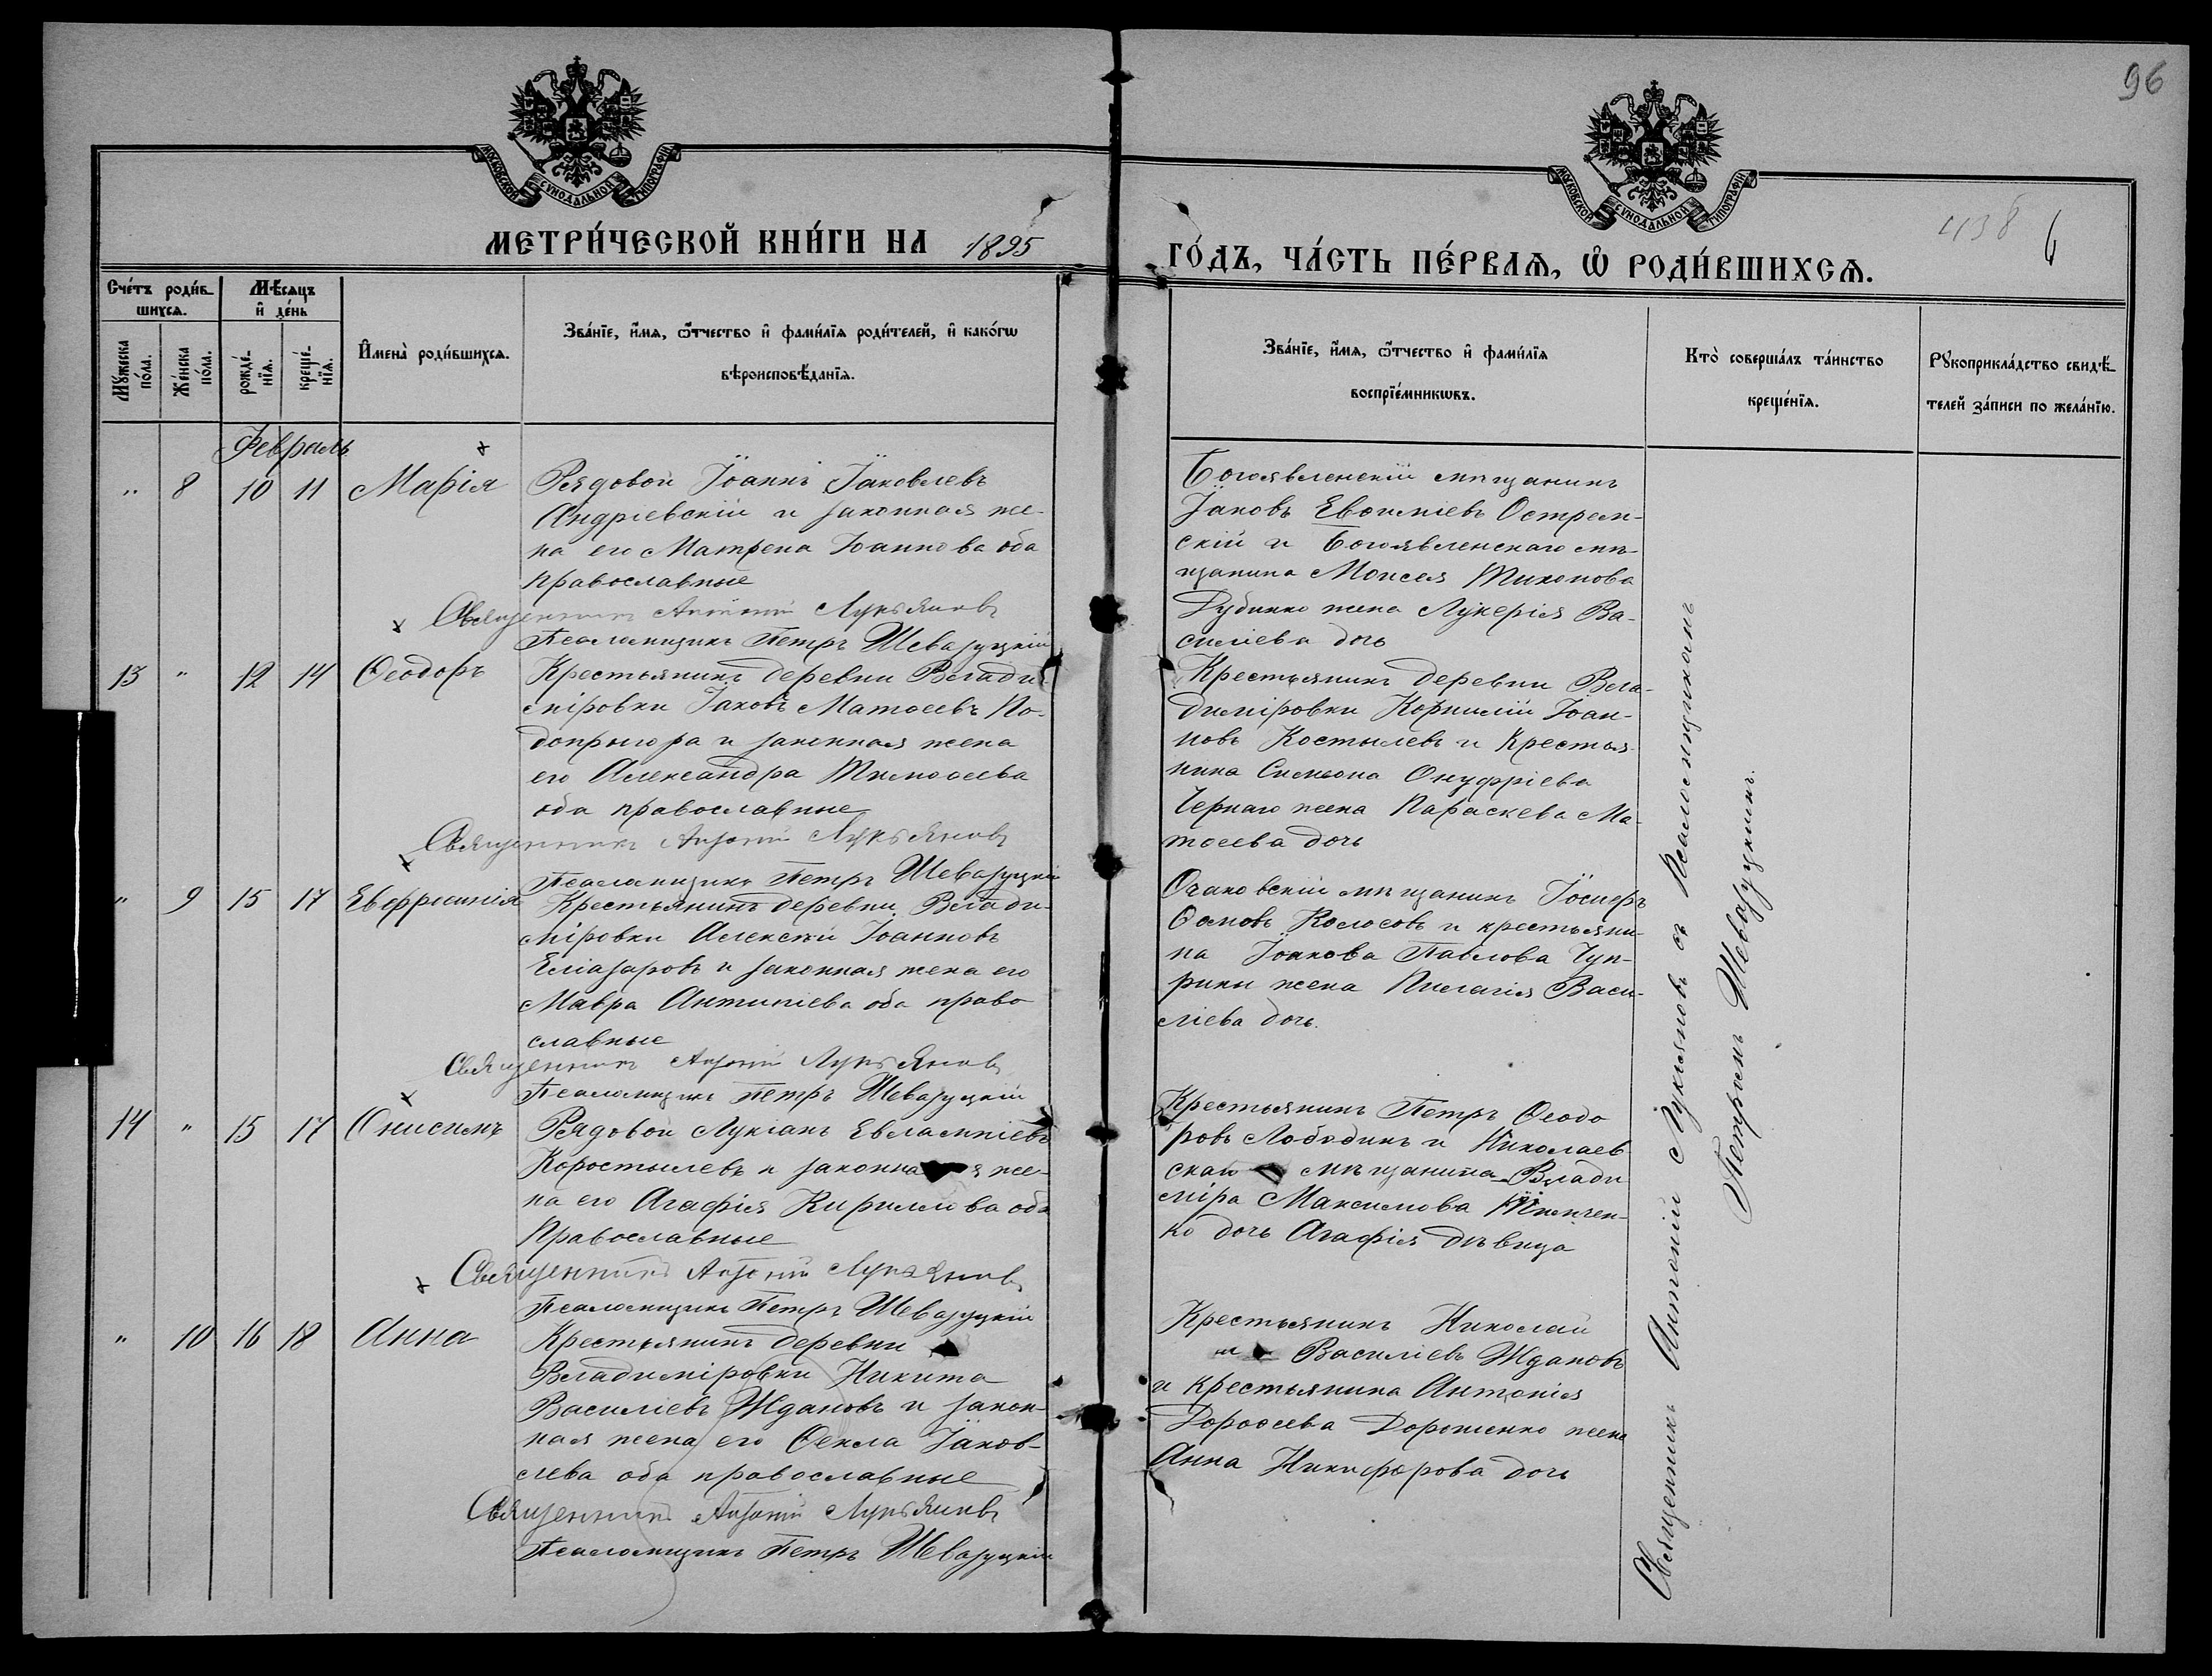 96
МОСКОВСКОЙ СѴНОДАЛЬНОЙ ТИПОГРАФІИ
МОСКОВСКОЙ СѴНОДАЛЬНОЙ ТИПОГРАФІИ
438
6
МЕТРИ́ЧЕСКОЙ КНИ́ГИ НА 1895
ГО́ДЪ, ЧА́СТЬ ПЕ́РВАѦ, Ѡ҆ РОДИ́ВШИХСѦ.
Сче́тъ роди́в-
шихсѧ.
Мѣ́сѧцъ
и҆ де́нь
Мꙋ́жеска
по́ла.
Же́нска
по́ла.
рожде́-
нїѧ.
креще́-
нїѧ.
И҆мена̀ роди́вшихсѧ.
Зва́нїе, и҆́мѧ, ѻ҆́тчество и҆ фами́лїѧ роди́телей, и҆ како́гѡ
вѣроисповѣ́данїѧ.
Зва́нїе, и҆́мѧ, ѻ҆́тчество и҆ фами́лїѧ
воспрїе́мникѡвъ.
Кто̀ соверша́лъ та́инство
креще́нїѧ.
Рꙋкоприкла́дство свидѣ́-
телей за́писи по жела́нїю.
Февраль
" 8 10 11 Марія
Рядовой Іоаннъ Іаковлевъ
Андріевскій и законная же-
на его Матрена Іоаннова оба
православные
Священникъ Антоній Лукьяновъ
Псаломщикъ Петръ Шевазуцкій
Богоявленскій мѣщанинъ
Іаковъ Евѳиміевъ Острем-
скій и Богоявленскаго мѣ-
щанина Моисея Тихонова
Дубинко жена Лукерія Ва-
силіева дочь
13 " 12 14 Ѳеодоръ
Крестьянинъ деревни Влади-
міровки Іаковъ Матѳеевъ По-
допрыгора и законная жена
его Александра Тимоѳеева
оба православные
Священникъ Антоній Лукьяновъ
Псаломщикъ Петръ Шевазуцкій
Крестьянинъ деревни Вла-
диміровки Корнилій Іоан-
новъ Костылевъ и крестья-
нина Симеона Онуфріева
Чернаго жена Параскева Ма-
тѳеева дочь
" 9 15 17 Евфросинія
Крестьянинъ деревни Влади-
міровки Алексѣй Іоанновъ
Елиазаровъ и законная жена его
Мавра Антипіева оба право
славные
Священникъ Антоній Лукьяновъ
Псаломщикъ Петръ Шевазуцкій
Очаковскій мѣщанинъ Іосифъ
Ѳомовъ Колосовъ и крестьяни-
на Іоакова Павлова Чуп-
рины жена Пилагія Васи-
ліева дочь.
14 " 15 17 Онисимъ
Рядовой Лукіанъ Евлампіевъ
Коростылевъ и законная же-
на его Агафія Кириллова оба
Православные
Священникъ Антоній Лукьяновъ
Псаломщикъ Петръ Шевазуцкій
Крестьянинъ Петръ Ѳеодо
ровъ Лободинъ и Николаев
скаго мѣщанина Влади
міра Максимова
ко дочь Агафія дѣвица
" 10 16 18 Анна
Крестьянинъ деревни
Владиміровки Никита
Василіевъ Ждановъ и закон-
ная жена его Ѳекла Іаков-
лева оба православные
Священникъ Антоній Лукьяновъ
Псаломщикъ Петръ Шевазуцкій
Крестьянинъ Николай
Василіевъ Ждановъ
и крестьянина Антонія
Дороѳеева Дорошенко жена
Анна Никифорова дочь
Священникъ Антоній Лукьяновъ съ Псаломщикомъ
Петромъ Шевазуцкимъ.